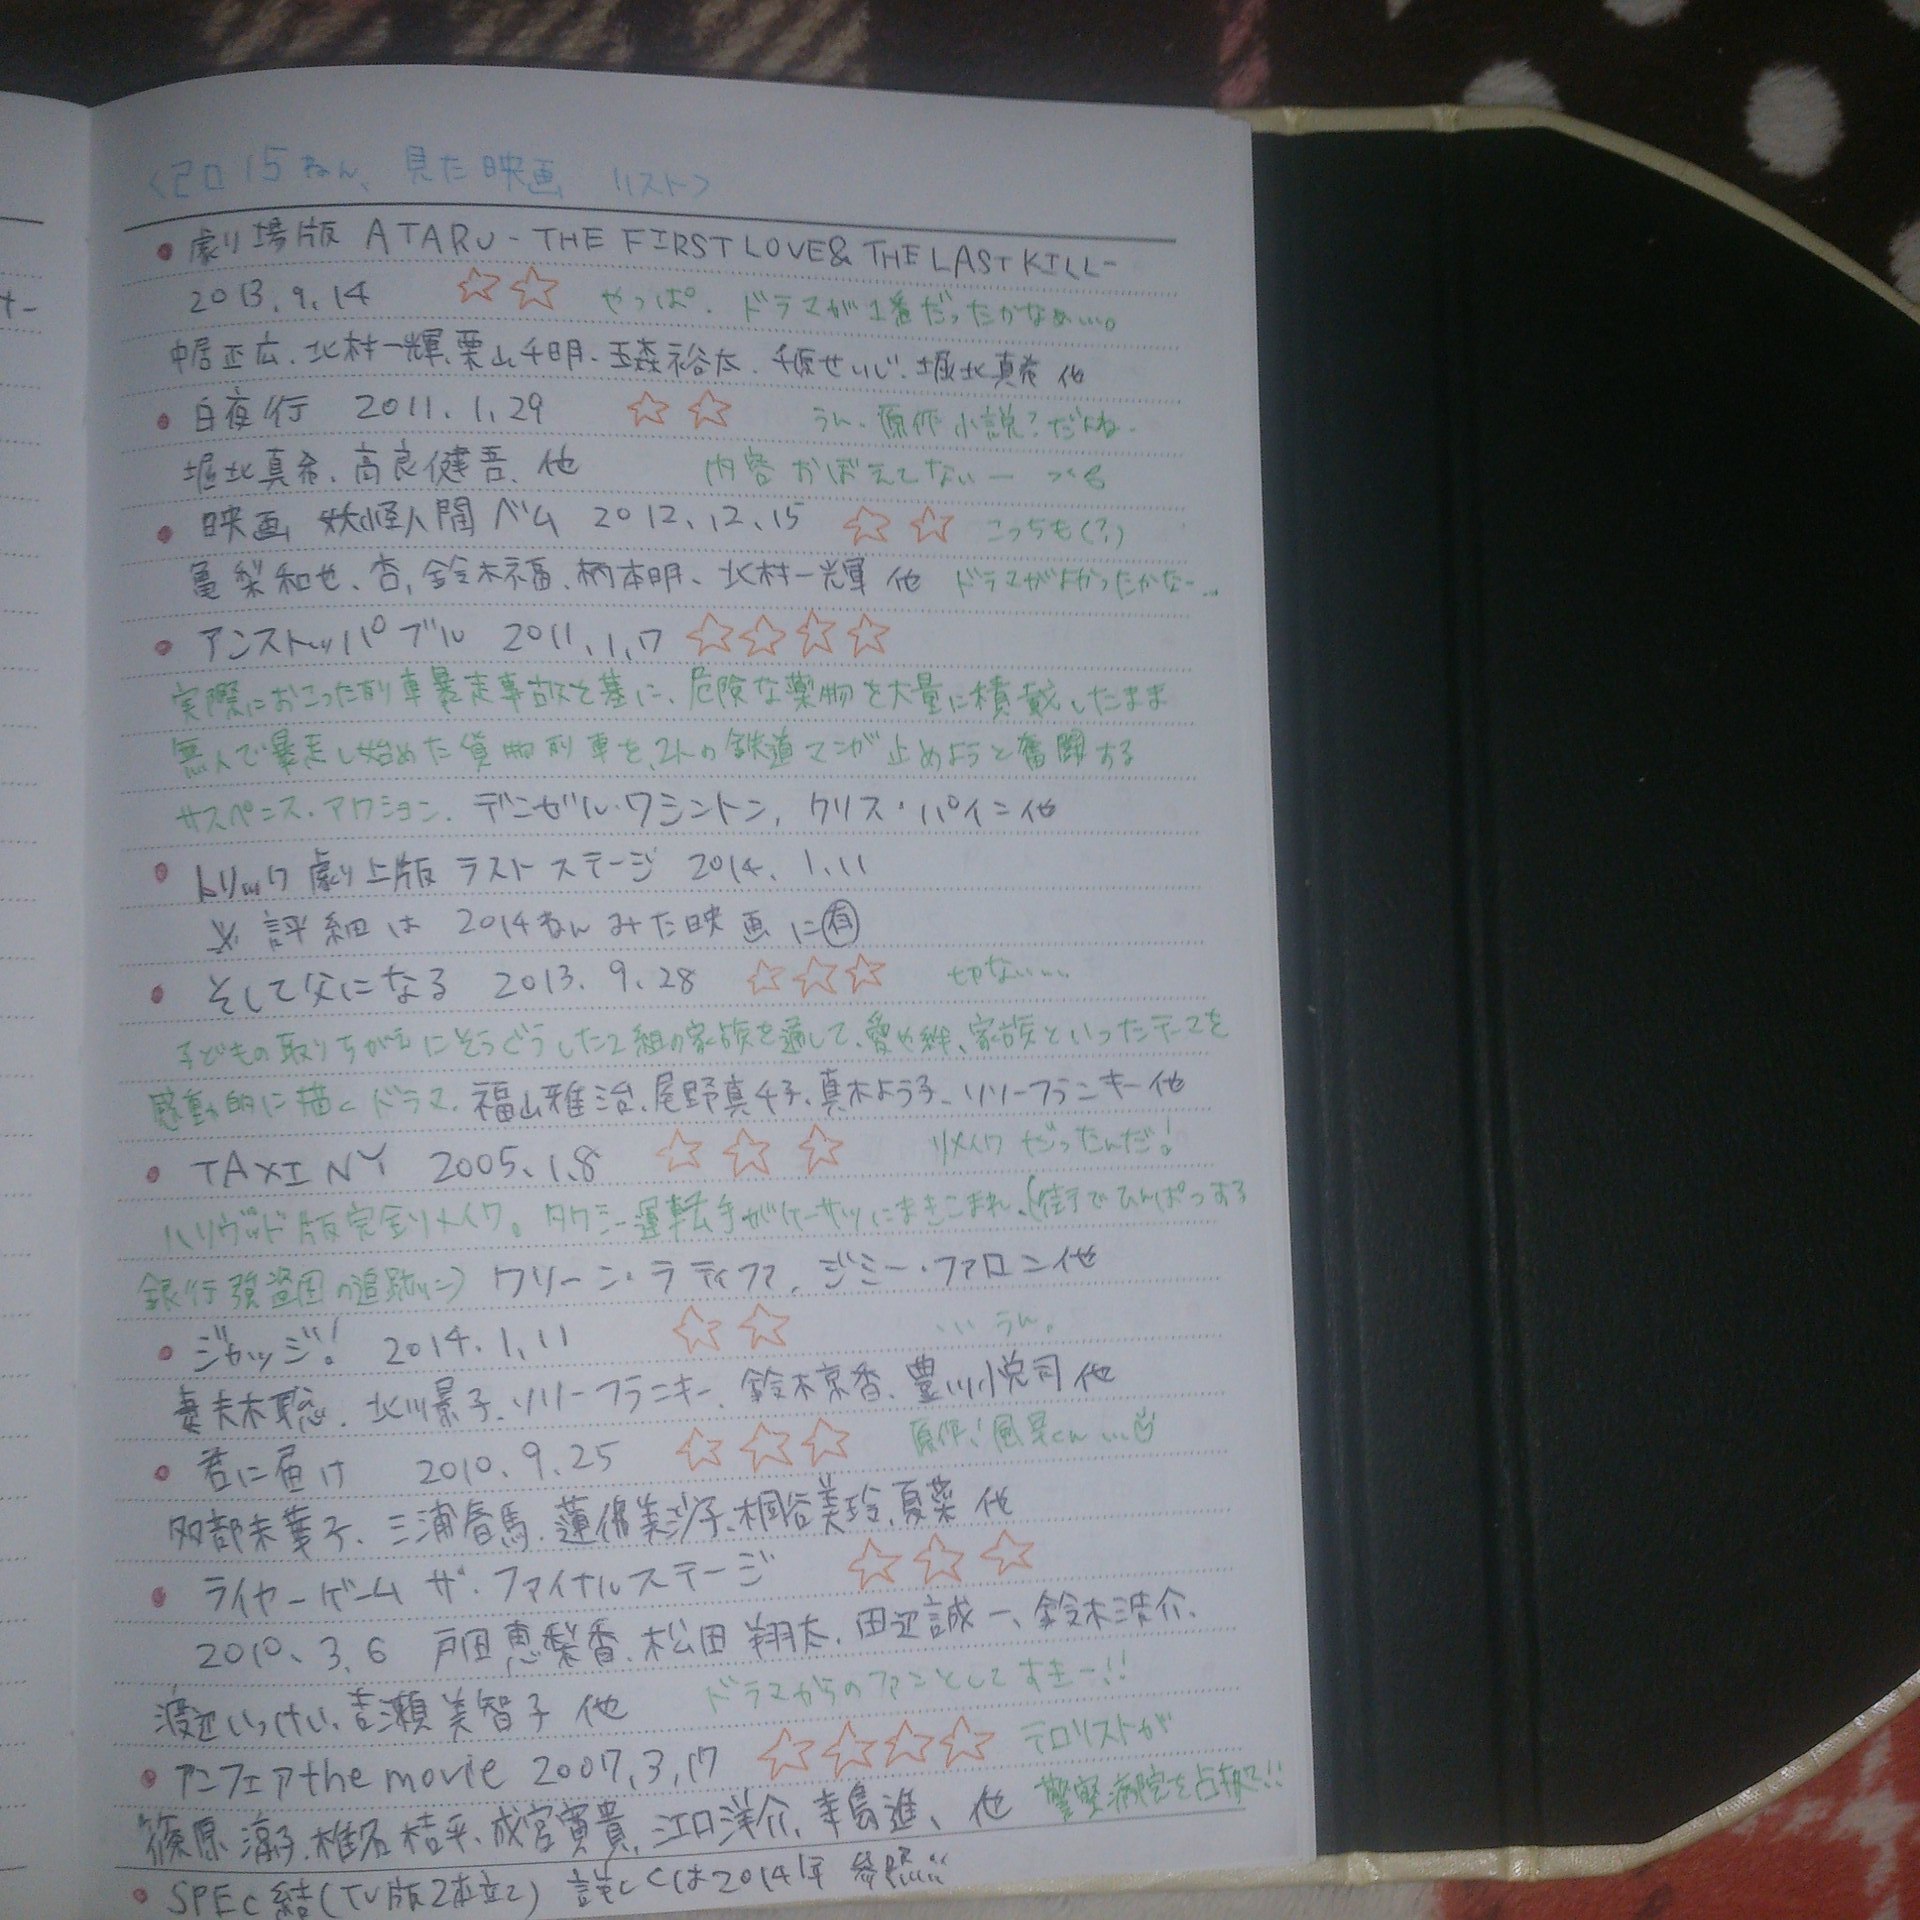 <2015ねん、見た映画 リスト>
• 劇場版 ATARU - THE FIRST LOVE & THE LAST KILL -
2013.9.14 ☆☆ やっぱ、ドラマが1番だったかなぁ...。
中居正広、北村一輝、栗山千明、玉森裕太、千原せいじ、堀北真希 他
• 白夜行 2011.1.29 ☆☆ うん、原作小説?だよね。
堀北真希、高良健吾、他 内容おぼえてないー
• 映画 妖怪人間ベム 2012.12.15 ☆☆ こっちも(?)
亀梨和也、杏、鈴木福、柄本明、北村一輝 他 ドラマがよかったかなー...
• アンストッパブル 2011.1.7 ☆☆☆☆
実際におこった列車暴走事故を基に、危険な薬物を大量に積載したまま
無人で暴走し始めた貨物列車を、2人の鉄道マンが止めようと奮闘する
サスペンス・アクション. デンゼル・ワシントン, クリス・パイン他
• トリック劇上版 ラストステージ 2014.1.11
※ 評細は 2014ねんみた映画に㊒
• そして父になる 2013.9.28 ☆☆☆ 切ない...
子どもの取りちがえにそうぐうした2組の家族を通して、愛や絆、家族といったテーマを
感動的に描くドラマ. 福山雅治、尾野真千子、真木よう子、リリーフランキー他
• TAXI NY 2005.1.8 ☆☆☆ リメイクだったんだ!
ハリウッド版完全リメイク。タクシー運転手がケーサツにまきこまれ、(街でひんぱつする
銀行強盗団の追跡に) クリーン・ラティファ, ジミー・ファロン他
• ジャッジ! 2014.1.11 ☆☆ ..うん。
妻夫木聡、北川景子、リリーフランキー、鈴木京香、豊川悦司 他
• 君に届け 2010.9.25 ☆☆☆ 原作! 風早くん...
多部未華子、三浦春馬、蓮佛美沙子、桐谷美玲、夏菜 他
• ライヤーゲーム ザ・ファイナルステージ ☆☆☆
2010.3.6 戸田恵梨香、松田翔太、田辺誠一、鈴木浩介、
渡辺いっけい、吉瀬美智子 他 ドラマからのファンとしてすきー!!
• アンフェア the movie 2007.3.17 ☆☆☆☆ テロリストが
篠原涼子、椎名桔平、成宮寛貴、江口洋介、寺島進、他 警察病院を占拠!!
• SPEC 結(TV版2本立て) 詳しくは2014年 参照